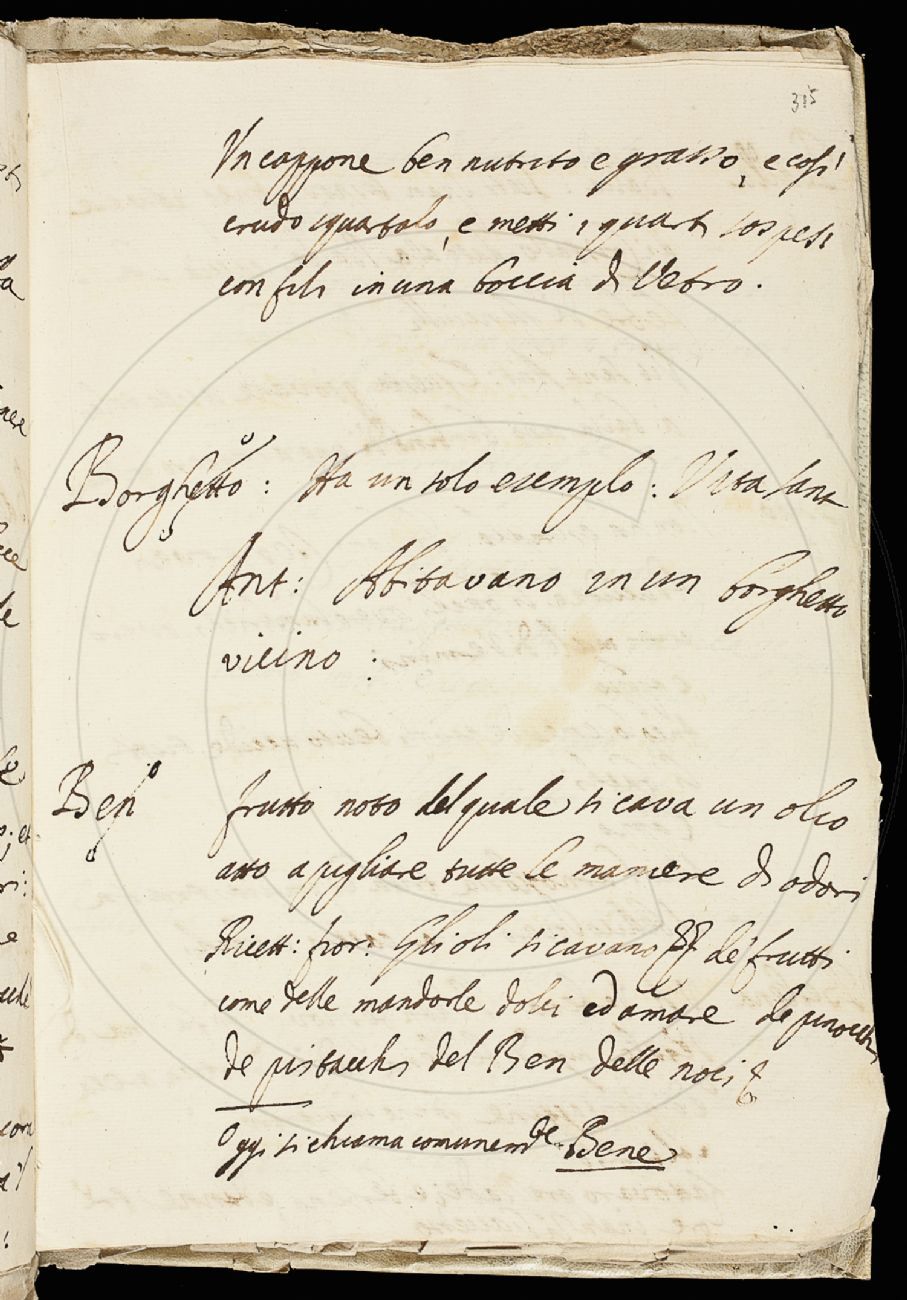 315
Un cappone ben nutrito e grasso, e così
crudo squartalo, e metti i quarti sospesi
con fili in una boccia di Vetro.
Borghetto: Ha un solo esempio: Vita Sant
Ant: Abitavano in un borghetto
vicino:
Ben frutto noto del quale si cava un olio
atto a pigliare tutte le maniere di odori
Ricett: fior: Gli oli si cavano de' frutti
come delle mandorle dolci ed amare de pinocchi
de pistacchi del Ben delle noci
Oggi si chiama comunemte Bene